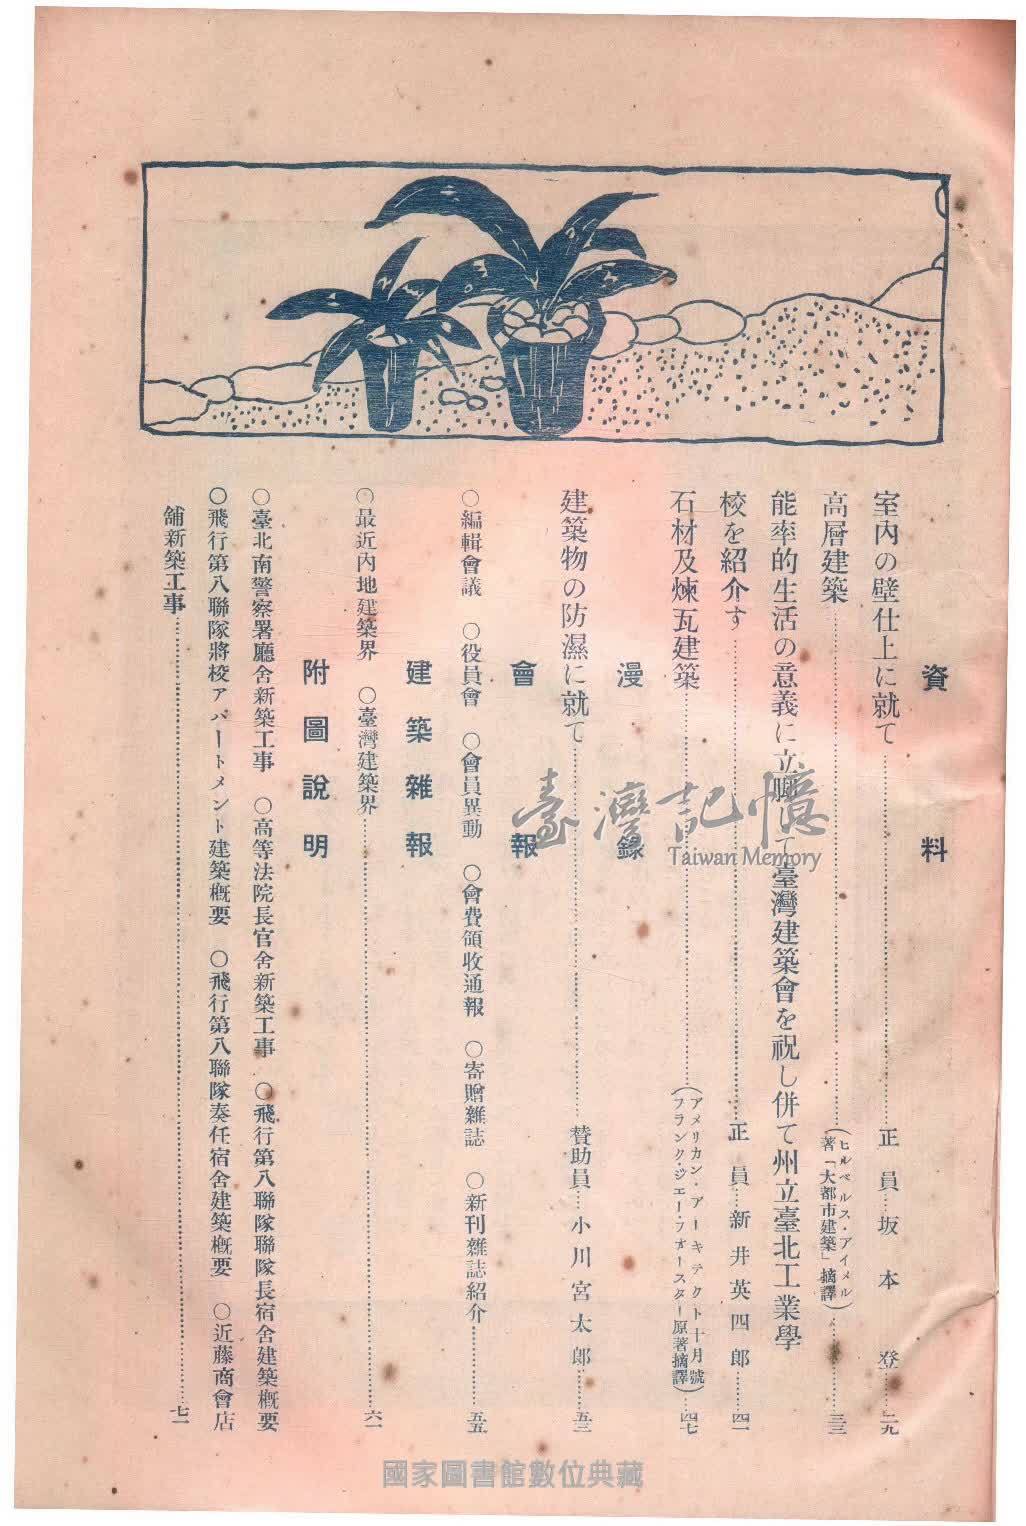 資料
室內の壁仕上に就て……正員…坂本登…二九
高層建築……(ヒルベルス・アイメル著「大都市建築」摘譯)……三三
能率的生活の意義に立脚して臺灣建築會を祝し併て州立臺北工業學
校を紹介す……正員…新井英四郎……四一
石材及煉瓦建築……(アメリカン・アーキテクト十月號フランク・ジエー・フオースター原著摘譯)……四七
漫錄
建築物の防濕に就て……贊助員…小川宮太郎……五三
會報
○編輯會議 ○役員會 ○會員異動 ○會費領收通報 ○寄贈雜誌 ○新刊雜誌紹介……五五
建築雜報
○最近內地建築界 ○臺灣建築界……六一
附圖說明
○臺北南警察署廳舍新築工事 ○高等法院長官舍新築工事 ○飛行第八聯隊聯隊長宿舍建築槪要
○飛行第八聯隊將校アパートメント建築槪要 ○飛行第八聯隊奏任宿舍建築槪要 ○近藤商會店
舖新築工事……七一
臺灣記憶
Taiwan Memory
國家圖書館數位典藏